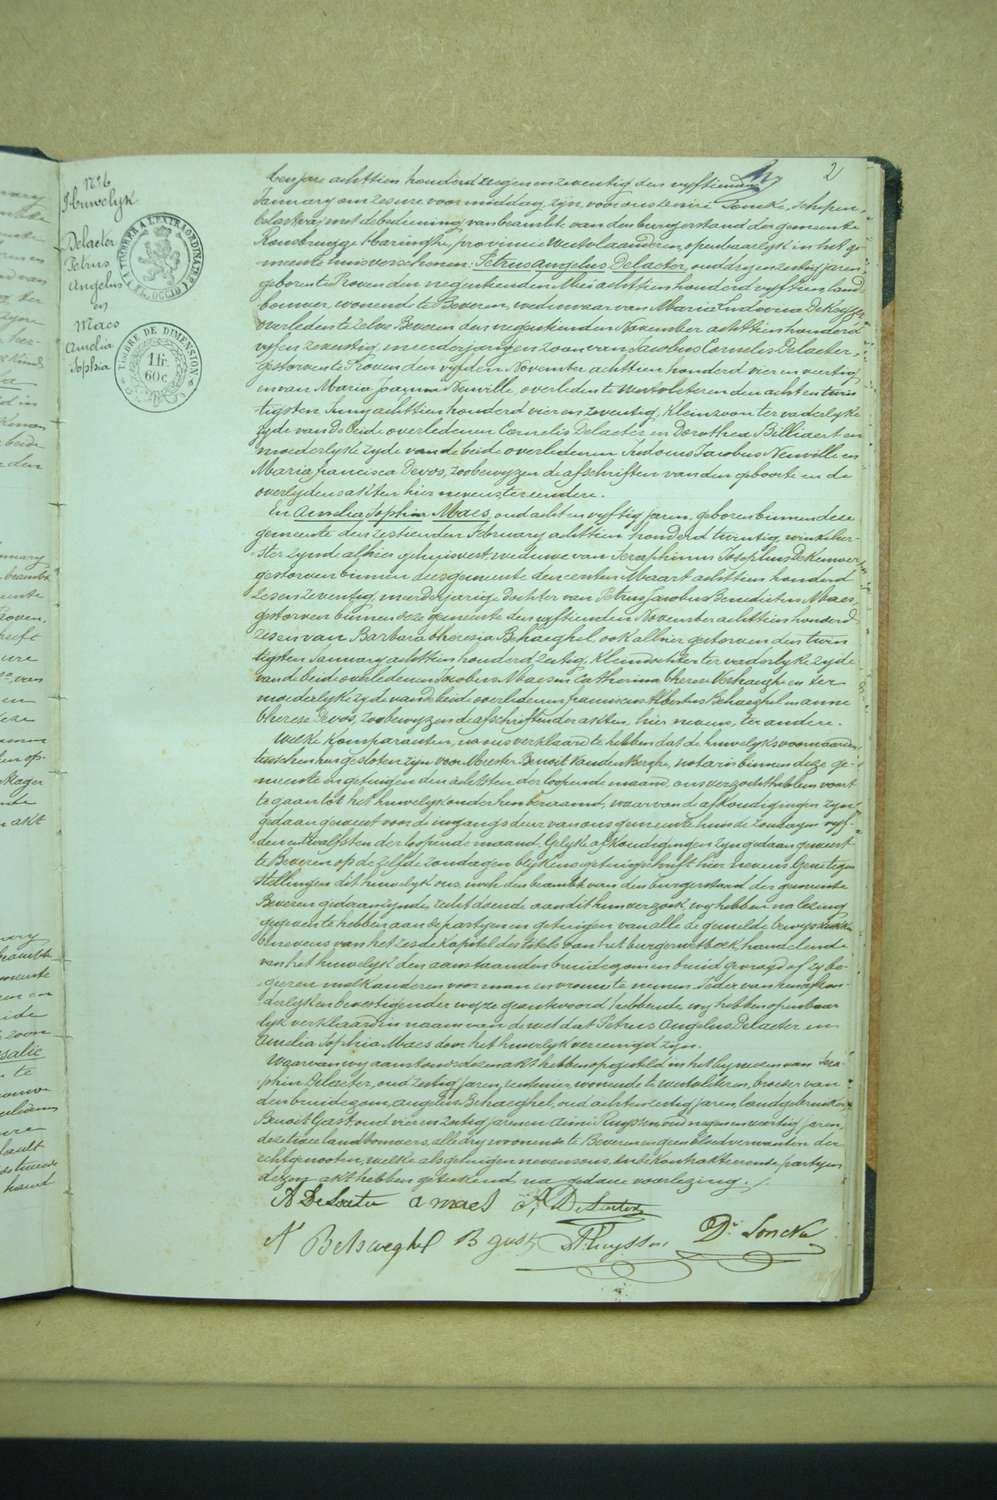 2
N° 6
Huwelyk
Delaeter
Petrus
Angelus
en
Maes
Amelia
Sophia
TIMBRE A L'EXTRAORDINAIRE
TIMBRE DE DIMENSION
1 fr.
60 c.
Ten jare achttien honderd negen en zeventig den vyftienden
January om zes ure voor middag, zyn voor ons Desiré Soncke, schepen,
belast met de bediening van beambte van den burgerstand der gemeente
Rousbrugge Haringhe, provincie Westvlaanderen, openbaarlyk in het ge-
meente huis verschenen: Petrus Angelus Delaeter, oud dry en zestig jaren,
geboren te Proven den negentienden Mei achttien honderd vyftien, land-
bouwer, wonend te Beveren, weduwaar van Maria Ludovica Dekeyser
overleden te zelve Beveren den negentienden November achttien honderd
vyf en zeventig, meerderjarigen zoon van Jacobus Cornelis Delaeter,
gestorven te Proven den vyfden November achttien honderd vier en veertig
en van Maria Joanna Neuville, overleden te Westvleteren den acht en twin-
tigsten Juny achttien honderd vier en zeventig, kleinzoon ter vaderlyke
zyde van de beide overledenen Cornelis Delaeter en Dorothea Billiaert en
moederlyke zyde van de beide overledenen Antonius Jacobus Neuville en
Maria francisca Devos, zoo bewyzen de afschriften van den geboorte en de
overlydens akten hier nevens ter eendere.
En Amelia Sophia Maes, oud acht en vyftig jaren, geboren binnen deze
gemeente den zestienden February achttien honderd twintig, winkelier-
ster zynde alhier gehuisvest weduwe van Seraphinus Josephus Dekeuwer
gestorven binnen deze gemeente den eersten Maart achttien honderd
zes en zeventig, meerderjarige dochter van Petrus Jacobus Benedictus Maes,
gestorven binnen deze gemeente den vyftienden November achttien honderd
zes en van Barbara theresia Behaeghel, ook alhier gestorven den twin
tigsten January achttien honderd zestig, kleindochter ter vaderlyke zyde
van de beide overledenen Jacobus Maes en Catharina therese Verhaeghe en ter
moederlyke zyde van de beide overledenen franciscus Albertus Behaeghel en anne
therese Devos, zoo bewyzen de afschriften der akten, hier nevens, ter andere.
Welke komparanten, na ons verklaard te hebben dat de huwelyks voorwaarden
tusschen hen gesloten zyn voor Meester Benoit Vanden Berghe, notaris binnen deze ge-
meente en getuigen den achtsten der loopende maand, ons verzocht hebben voort
te gaan tot het huwelyk onder hen beraamd, waarvan de afkondigingen zyn
gedaan geweest voor de ingangs deur van ons gemeente huis de zondagen vyf-
den en twalfsten der loopende maand. Gelyke afkondigingen zyn gedaan geweest
te Beveren op de zelfde zondagen blykens getuigschrift hier nevens. Geene tegen
stellingen dit huwelyk ons, noch den beambte van den burgerstand der gemeente
Beveren gedaan zynde, recht doende aan dit hun verzoek, wy hebben na lezing
gegeven te hebben aan de partyen en getuigen van alle de gemelde bewysstukken
benevens van het zesde kapitel des titels van het burgerwetboek, handelende
van het huwelyk, den aanstaanden bruidegom en bruid gevraagd of zy be-
geeren malkanderen voor man en vrouw te nemen. Ieder van hen afzon-
derlyk en bevestigender wyze geantwoord hebbende, wy hebben openbaar
lyk verklaard in naam van de wet dat Petrus Angelus Delaeter en
Amelia Sophia Maes door het huwelyk vereenigd zyn.
Waarvan wy aanstonds dezen akt hebben opgesteld in het bywezen van Sera-
phin Delaeter, oud zestig jaren, rentenier, wonende te westvleteren, broeder van
den bruidegom, Angelus Behaeghel, oud acht en zestig jaren, landgebruiker,
Benoit Gast, oud vier en zestig jaren en Aimé Ruyssen, oud negen en veertig jaren,
deze twee landbouwers, alle dry wonende te Beveren en geen bloedverwanten der
echtgenooten, welke als getuigen nevens ons en de kontrakteerende partyen
dezen akt hebben geteekend na gedane voorlezing.
a maes
A Behaeghel